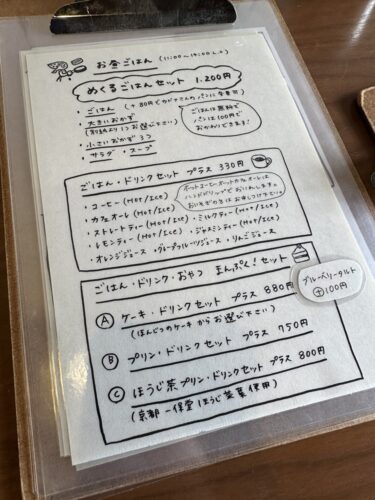 お昼ごはん (11:00〜14:00 L.O)
めぐるごはんセット 1,200円
・ごはん (+80円で
パンに変更可)
・大きいおかず
(別紙より1つお選び下さい)
・小さいおかず3つ
・サラダ ・スープ
ごはんは無料で
パンは100円で
おかわりできます!
ごはん・ドリンクセット プラス 330円
・コーヒー (HOT/ICE)
・カフェオレ (HOT/ICE)
・ストレートティー (HOT/ICE) ・ミルクティー (HOT/ICE)
・レモンティー (HOT/ICE) ・ジャスミンティー (HOT/ICE)
・オレンジジュース ・グレープフルーツジュース ・りんごジュース
ホットコーヒー、ホットカフェオレは
ハンドドリップでおいれします。
おいそぎの方はお申しつけ下さい。
ごはん・ドリンク・おやつ まんぷく!セット
Ⓐ ケーキ・ドリンクセット プラス 880円
(ほんじつのケーキからお選び下さい)
ブルーベリータルト
⊕100円
Ⓑ プリン・ドリンクセット プラス 750円
Ⓒ ほうじ茶プリン・ドリンクセット プラス 800円
(京都 一保堂 ほうじ茶葉使用)